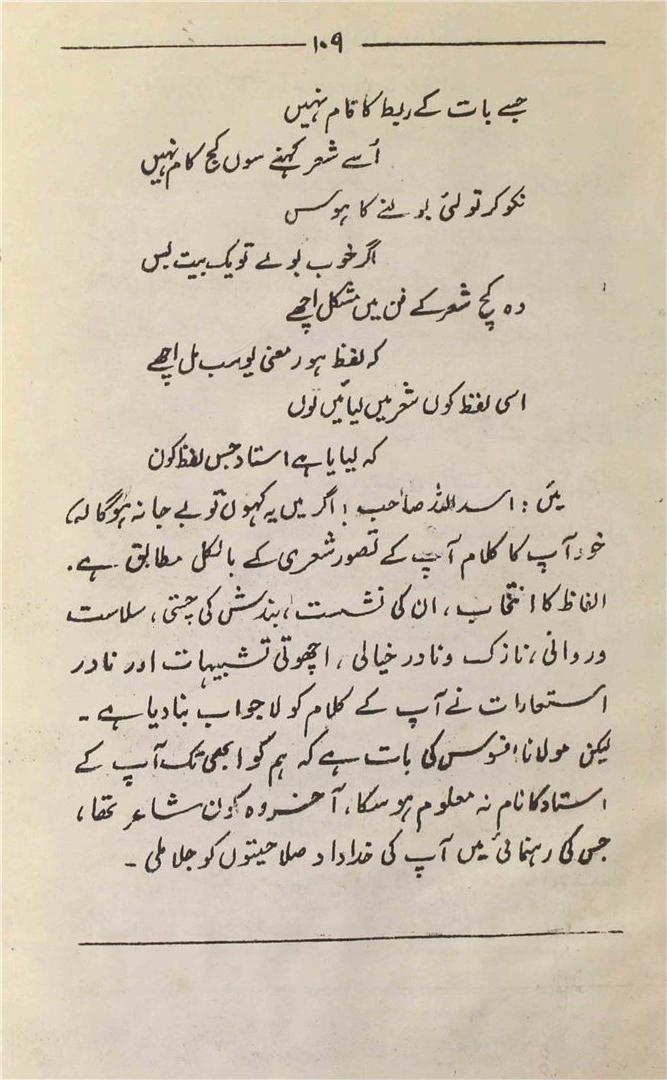 ۱۰۹
جسے بات کے ربط کا فام نہیں
اُسے شعر کہنے سوں کچ کام نہیں
نکو کر تو لئی بولنے کا ہوس
اگر خوب بولے تو یک بیت بس
وہ کچ شعر کے فن میں مشکل اچھے
کہ لفظ ہور معنی یو سب مل اچھے
اسی لفظ کوں شعر میں لیائیں توں
کہ لیایا ہے استاد جس لفظ کون
میں : اسد اللہ صاحب ! اگر میں یہ کہوں تو بے جا نہ ہوگا کہ
خود آپ کا کلام آپ کے تصور شعری کے بالکل مطابق ہے۔
الفاظ کا انتخاب ، ان کی نشست ، بندش کی چستی ، سلاست
و روانی ، نازک و نادر خیالی ، اچھوتی تشبیہات اور نادر
استعارات نے آپ کے کلام کو لاجواب بنا دیا ہے ۔
لیکن مولانا افسوس کی بات ہے کہ ہم کو ابھی تک آپ کے
استاد کا نام نہ معلوم ہو سکا ، آخر وہ کون شاعر تھا ،
جس کی رہنمائی میں آپ کی خداداد صلاحیتوں کو جلا ملی ۔